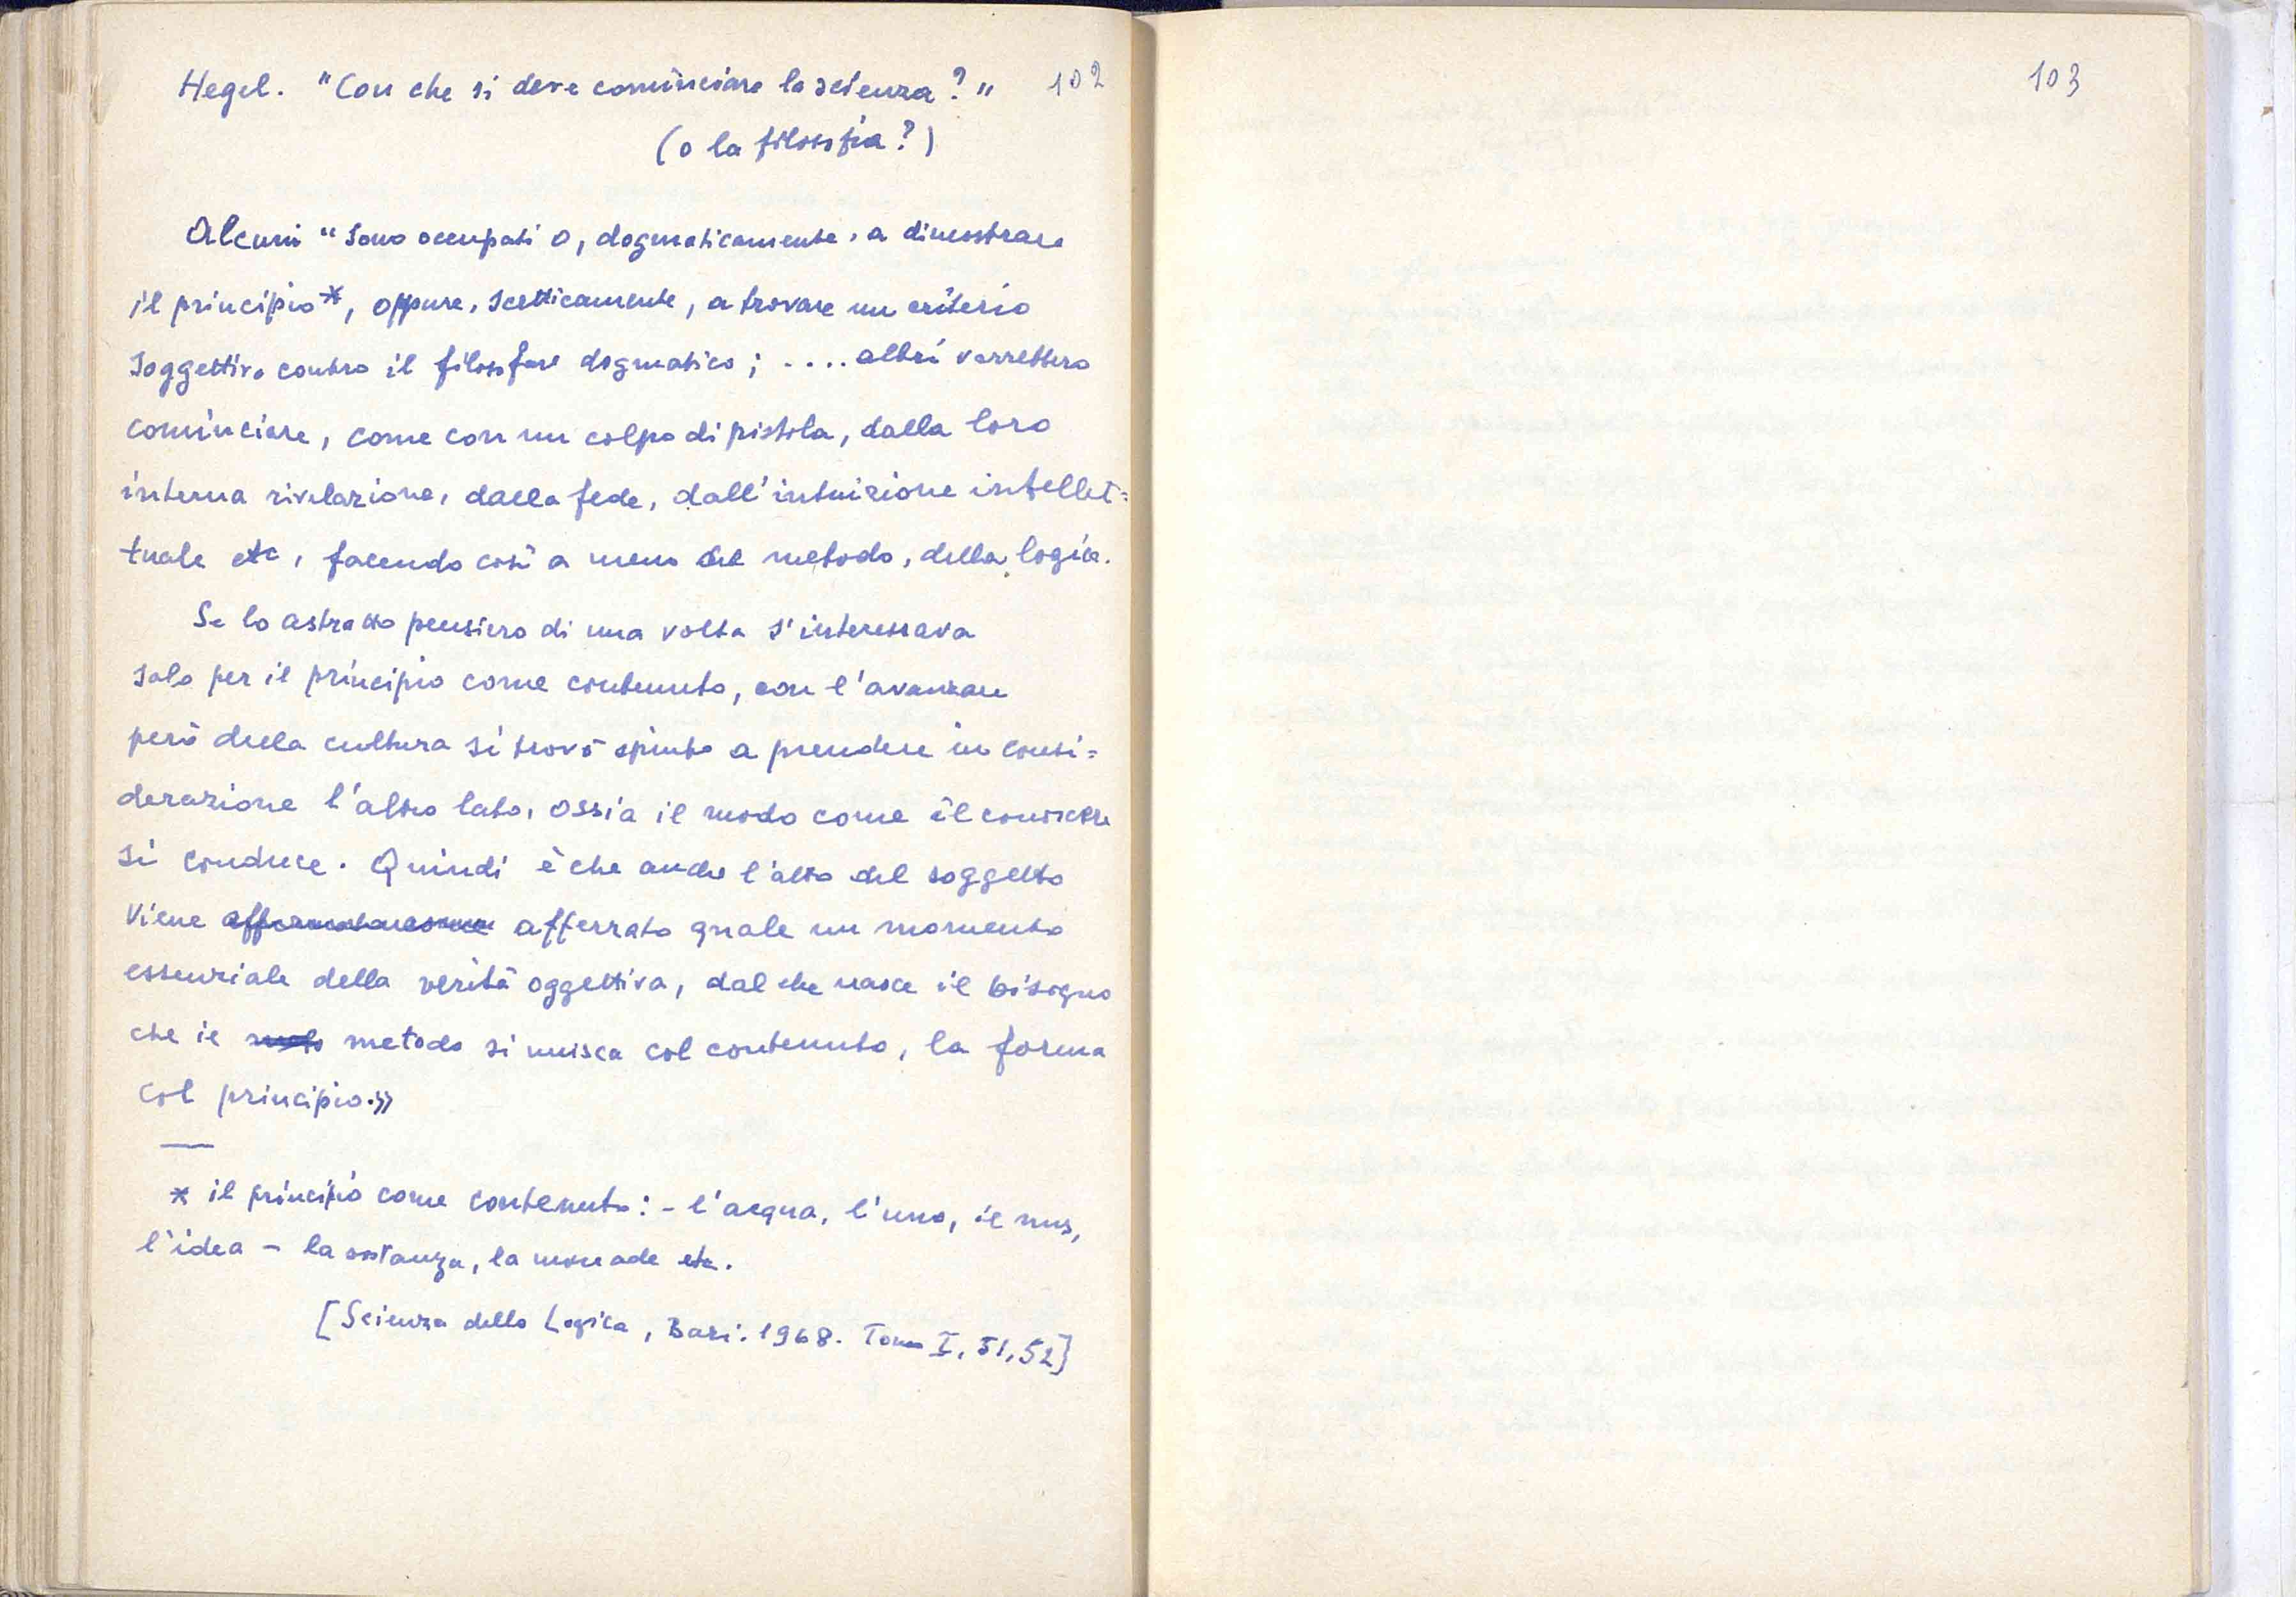 Hegel. "Con che si deve cominciare la scienza?" 102
(o la filosofia?)
Alcuni "sono occupati o, dogmaticamente, a dimostrare
il principio*, oppure, scetticamente, a trovare un criterio
soggettivo contro il filosofare dogmatico; .... altri vorrebbero
cominciare, come con un colpo di pistola, dalla loro
interna rivelazione, dalla fede, dall'intuizione intellet=
tuale etc, facendo così a meno del metodo, della logica.
Se lo astratto pensiero di una volta s'interessava
solo per il principio come contenuto, con l'avanzare
però della cultura si trovò spinto a prendere in consi=
derazione l'altro lato, ossia il modo come il conoscere
si conduce. Quindi è che anche l'atto del soggetto
viene afferrato quale un momento
essenziale della verità oggettiva, dal che nasce il bisogno
che il metodo si unisca col contenuto, la forma
col principio.»
* il principio come contenuto: - l'acqua, l'uno, il nus,
l'idea - la sostanza, la monade etc.
[Scienza della Logica, Bari. 1968. Tomo I, 51, 52]
103